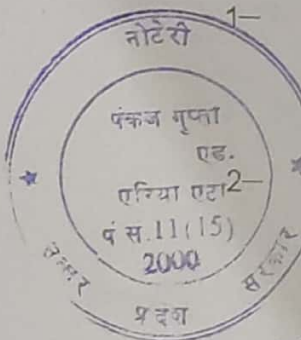 1–
नोटेरी
पंकज गुप्ता
एड.
एरिया एटा
2–
पं स.11(15)
2000
उत्तर प्रदेश सरकार